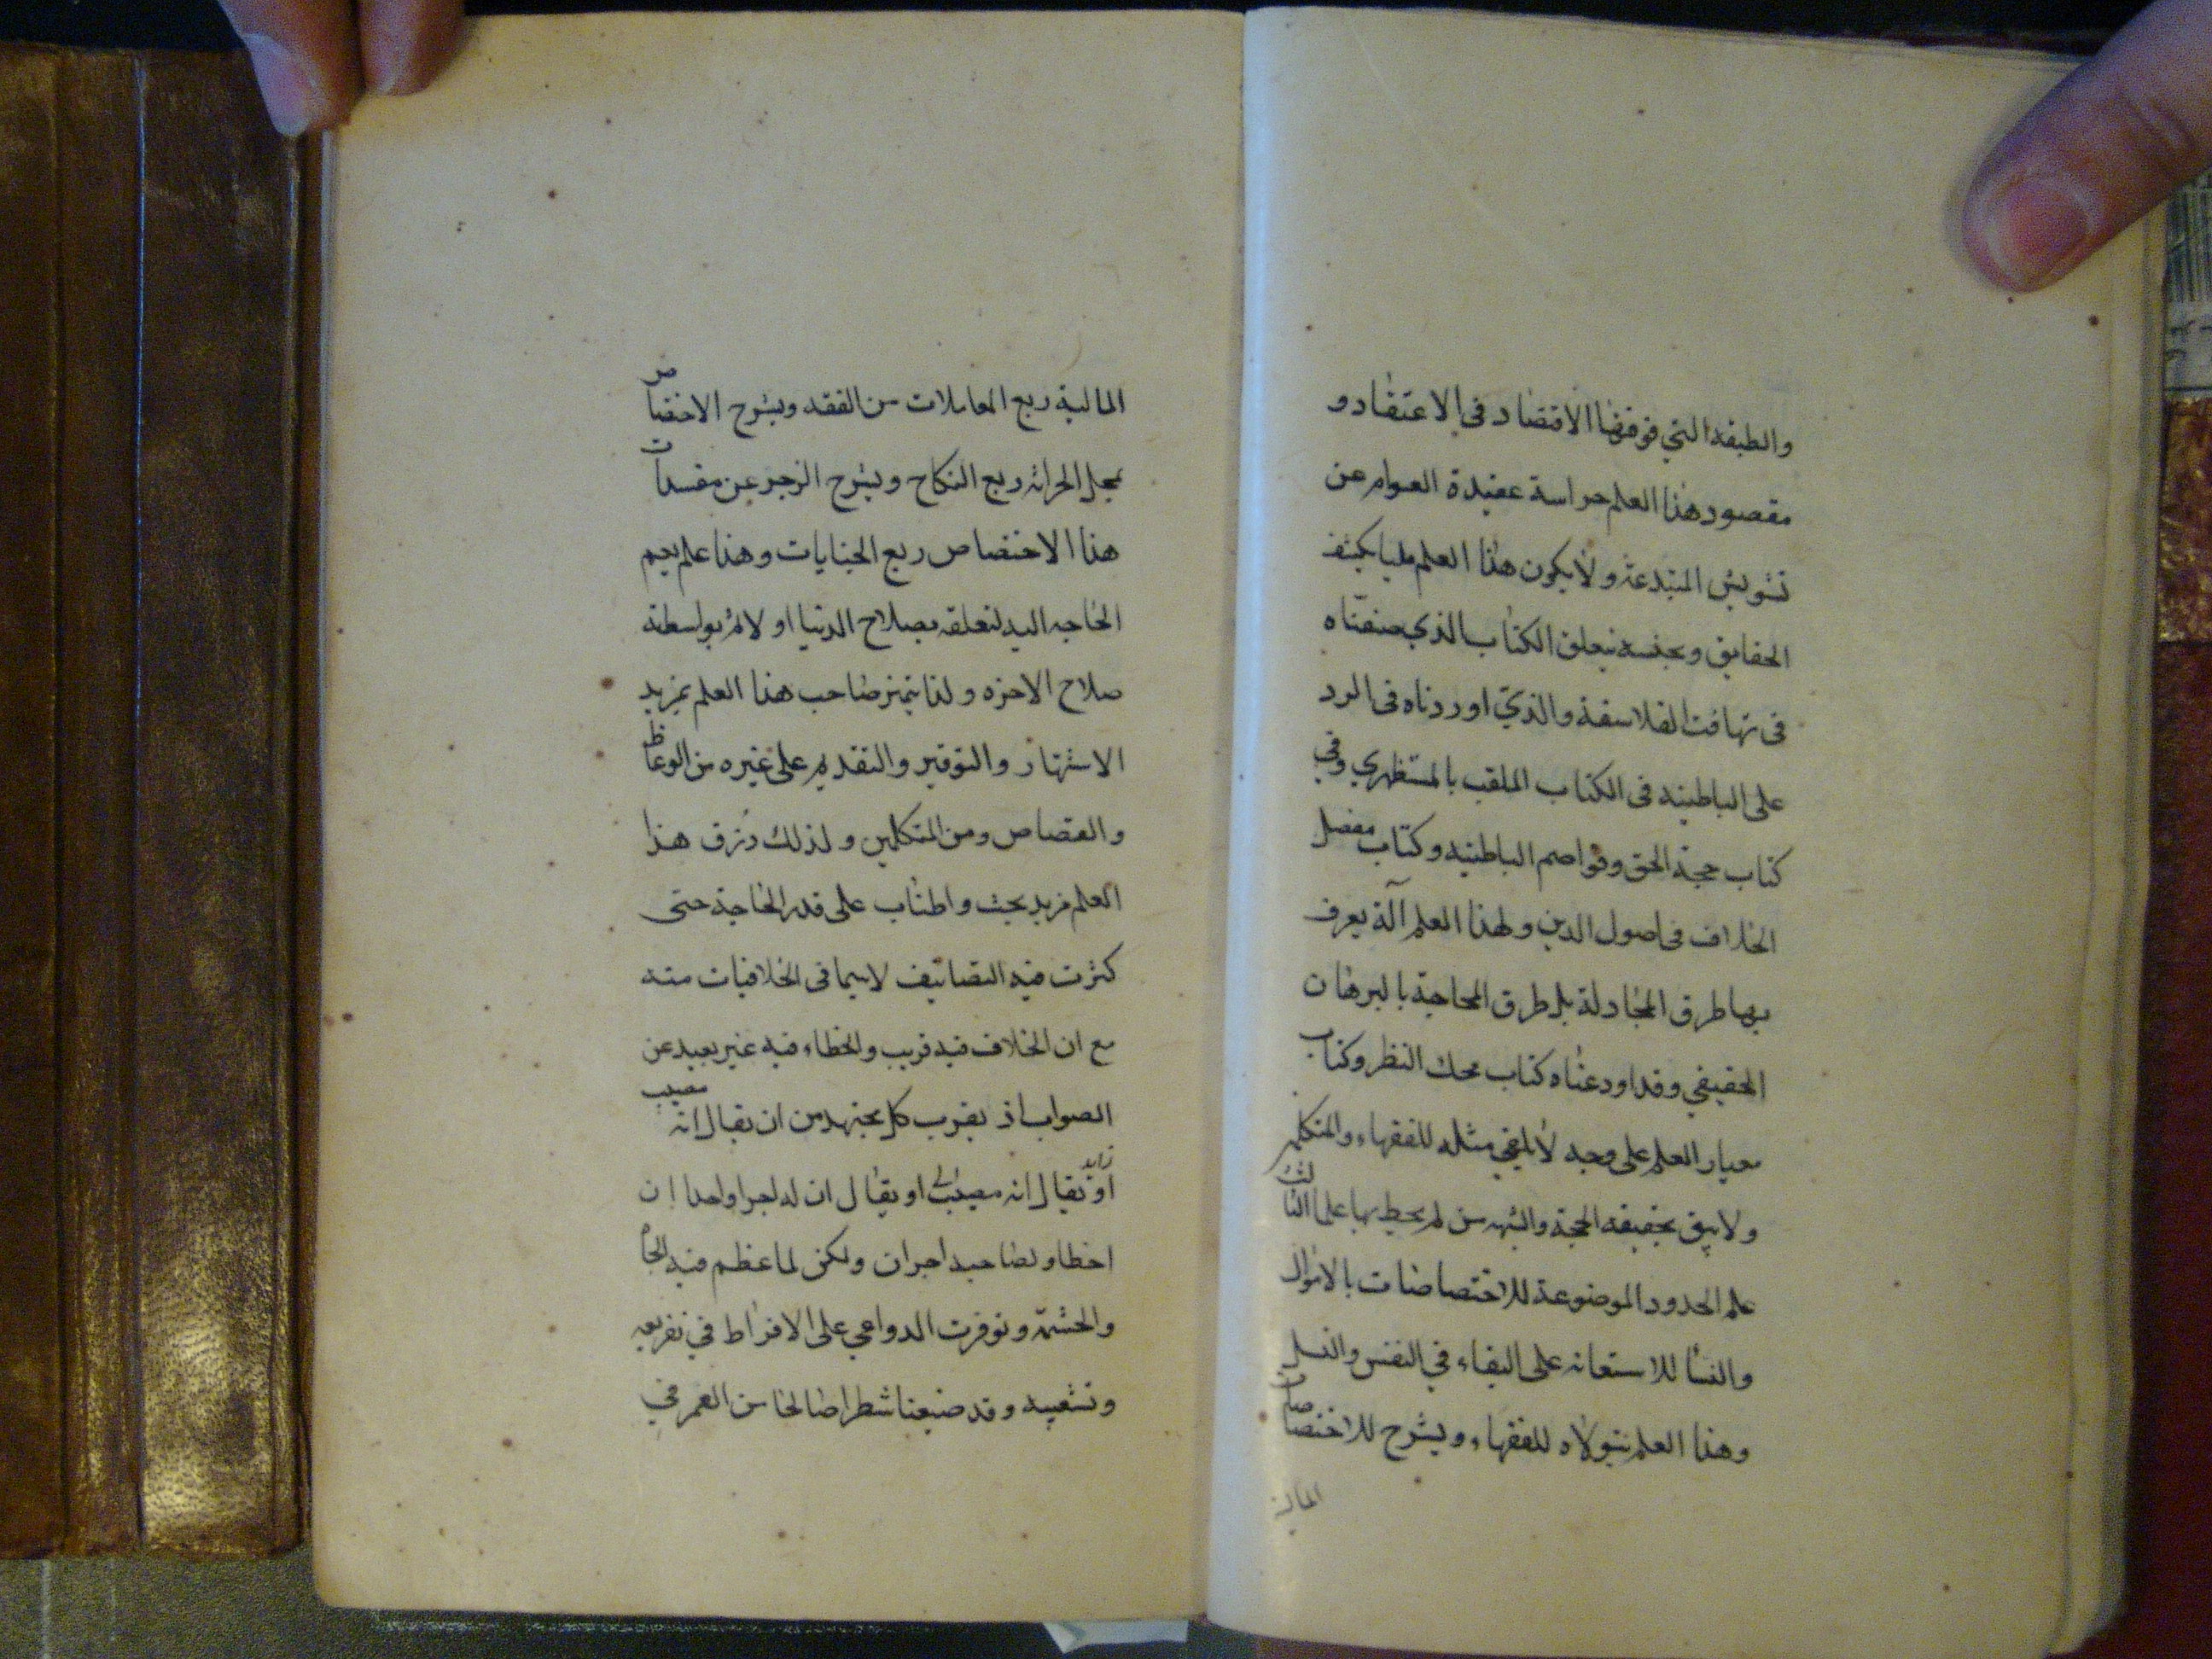 والطبقه التي فوقها الاقتصاد فى الاعتقاد و
مقصود هذا العلم حراسة عقيدة العوام عن
تشويش المبتدعة ولا يكون هذا العلم مليا بكشف
الحقايق وبجنسه يتعلق الكتاب الذي صنفناه
فى تهافت الفلاسفة والذي اوردناه فى الرد
على الباطنيه فى الكتاب الملقب بالمستظهري وفي
كتاب حجة الحق وقواصم الباطنيه وكتاب مفصل
الخلاف فى اصول الدين ولهذا العلم آلة يعرف
بها طرق المجادلة بل طرق المحاجة بالبرهان
الحقيقي وقد اودعناه كتاب محك النظر وكتاب
معيار العلم على وجه لا يلفي مثله للفقهاء والمتكلمين
ولا يثق بحقيقه الحجة والشبه من لم يحط بها علما الثالث
علم الحدود الموضوعة للاختصاصات بالاموال
والنسا للاستعانه على البقاء في النفس والنسل
وهذا العلم يتولاه للفقهاء ويشرح للاختصاصات
المالية
المالية ربع المعاملات من الفقه ويشرح الاختصاص
بمحل الحراثه ربع النكاح ويشرح الزجر عن مفسدات
هذا الاختصاص ربع الجنايات وهذا علم يعم
الحاجه اليه لتعلقه بصلاح الدنيا اولا ثم بواسطة
صلاح الاخره ولذا يتميز صاحب هذا العلم بمزيد
الاشتهار والتوقير والتقديم على غيره من الوعاظ
والقصاص ومن المتكلمين ولذلك رزق هذا
العلم مزيد بحث واطناب على قدر الحاجة حتى
كثرت فيه التصانيف لا سيما فى الخلافيات منه
مع ان الخلاف فيه قريب والخطاء فيه غير بعيد عن
الصواب اذ يقرب كل مجتهد من ان يقال انه مصيب
زايد
او يقال انه مصيب او يقال ان له اجرا واحدا ان
اخطا ولصاحبه اجران ولكن لما عظم فيه الجاه
والحشمة وتوفرت الدواعي على الافراط في تفريعه
وتشعيبه وقد ضيعنا شطرا صالحا من العمر في